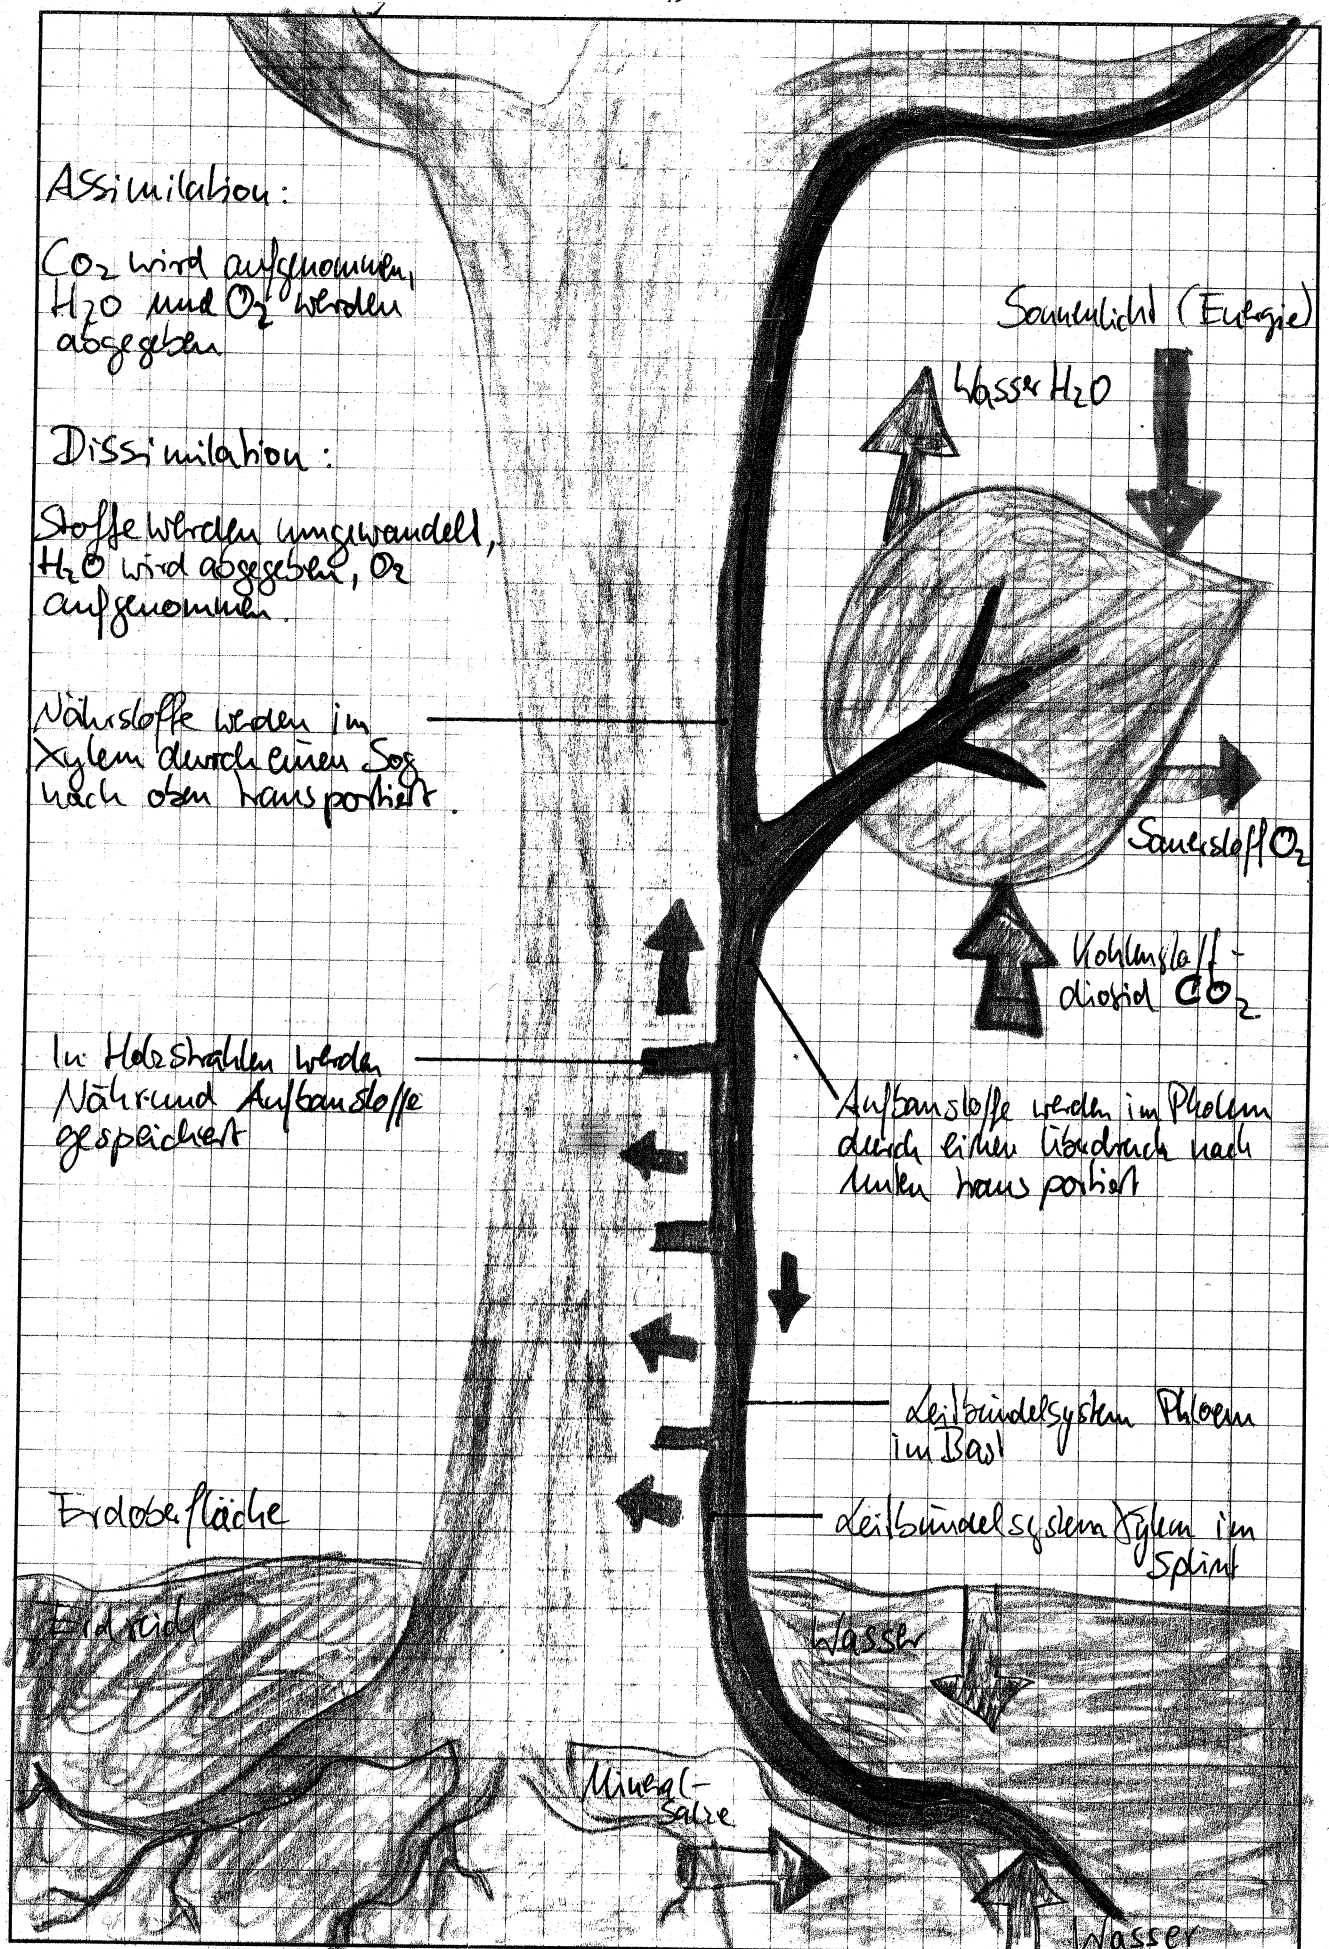 Assimilation:
CO2 wird aufgenommen,
H2O und O2 werden
abgegeben
Dissimilation:
Stoffe werden umgewandelt,
H2O wird abgegeben, O2
aufgenommen.
Nährstoffe werden im
Xylem durch einen Sog
nach oben transportiert.
In Holzstrahlen werden
Nähr-und Aufbaustoffe
gespeichert
Erdoberfläche
Erdreich
Sonnenlicht (Energie)
Wasser H2O
Sauerstoff O2
Kohlenstoff-
dioxid CO2
Aufbaustoffe werden im Pholem
durch einen Überdruck nach
unten transportiert
Leitbündelsystem Phloem
im Bast
Leitbündelsystem Xylem im
Splint
Wasser
Mineral-
salze
Wasser